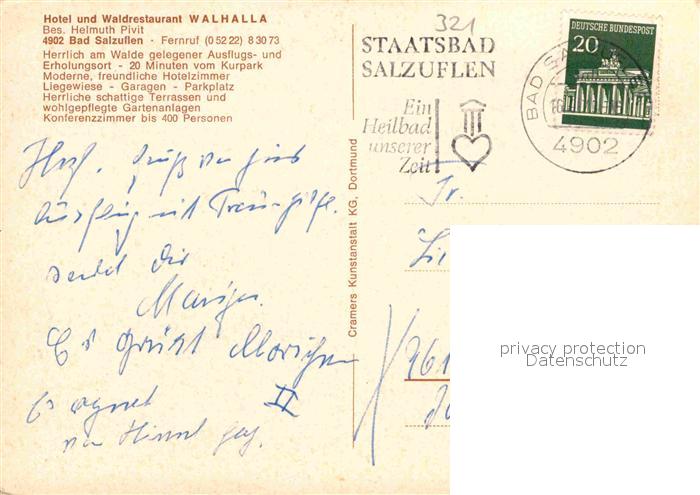 Hotel und Waldrestaurant WALHALLA
Bes. Helmuth Pivit
4902 Bad Salzuflen - Fernruf (0 52 22) 8 30 73
Herrlich am Walde gelegener Ausflugs- und
Erholungsort - 20 Minuten vom Kurpark
Moderne, freundliche Hotelzimmer
Liegewiese - Garagen - Parkplatz
Herrliche schattige Terrassen und
wohlgepflegte Gartenanlagen
Konferenzzimmer bis 400 Personen
321
STAATSBAD
SALZUFLEN
Ein
Heilbad
unserer
Zeit
DEUTSCHE BUNDESPOST
20
BAD
4902
Herzl.
Ausflug mit
sendet dir
Es grüßt
II
Es regnet
vom Himmel
Cramers Kunstanstalt KG, Dortmund
Fr.
privacy protection
Datenschutz